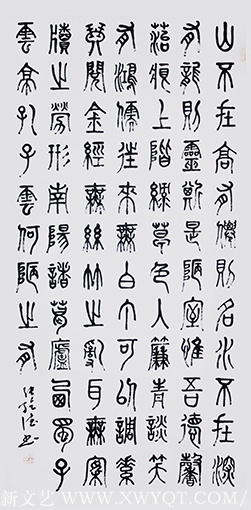 山不在高有僊則名水不在深
有龍則靈斯是陋室惟吾德馨
苔痕上階綠草色入簾青談笑
有鴻儒往來無白丁可以調素
琴閱金經無絲竹之亂耳無案
牘之勞形南陽諸葛廬西蜀子
雲亭孔子雲何陋之有
新文艺 WWW.XWYQT.COM